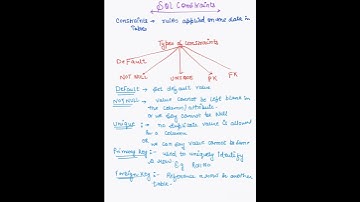 SQL Constraints
Constraints → rules applied on the data in
table
Types of constraints
Default
NOT NULL
UNIQUE
PK
FK
Default :- Set default value
NOT NULL :- value cannot be left blank in
the column/attribute.
Or we say cannot be null
Unique :- no duplicate value is allowed
in a column
OR we can say value cannot be same
Primary Key :- Used to uniquely identify
a row. E.g. Roll No
Foreign Key :- Reference a row to another
table.